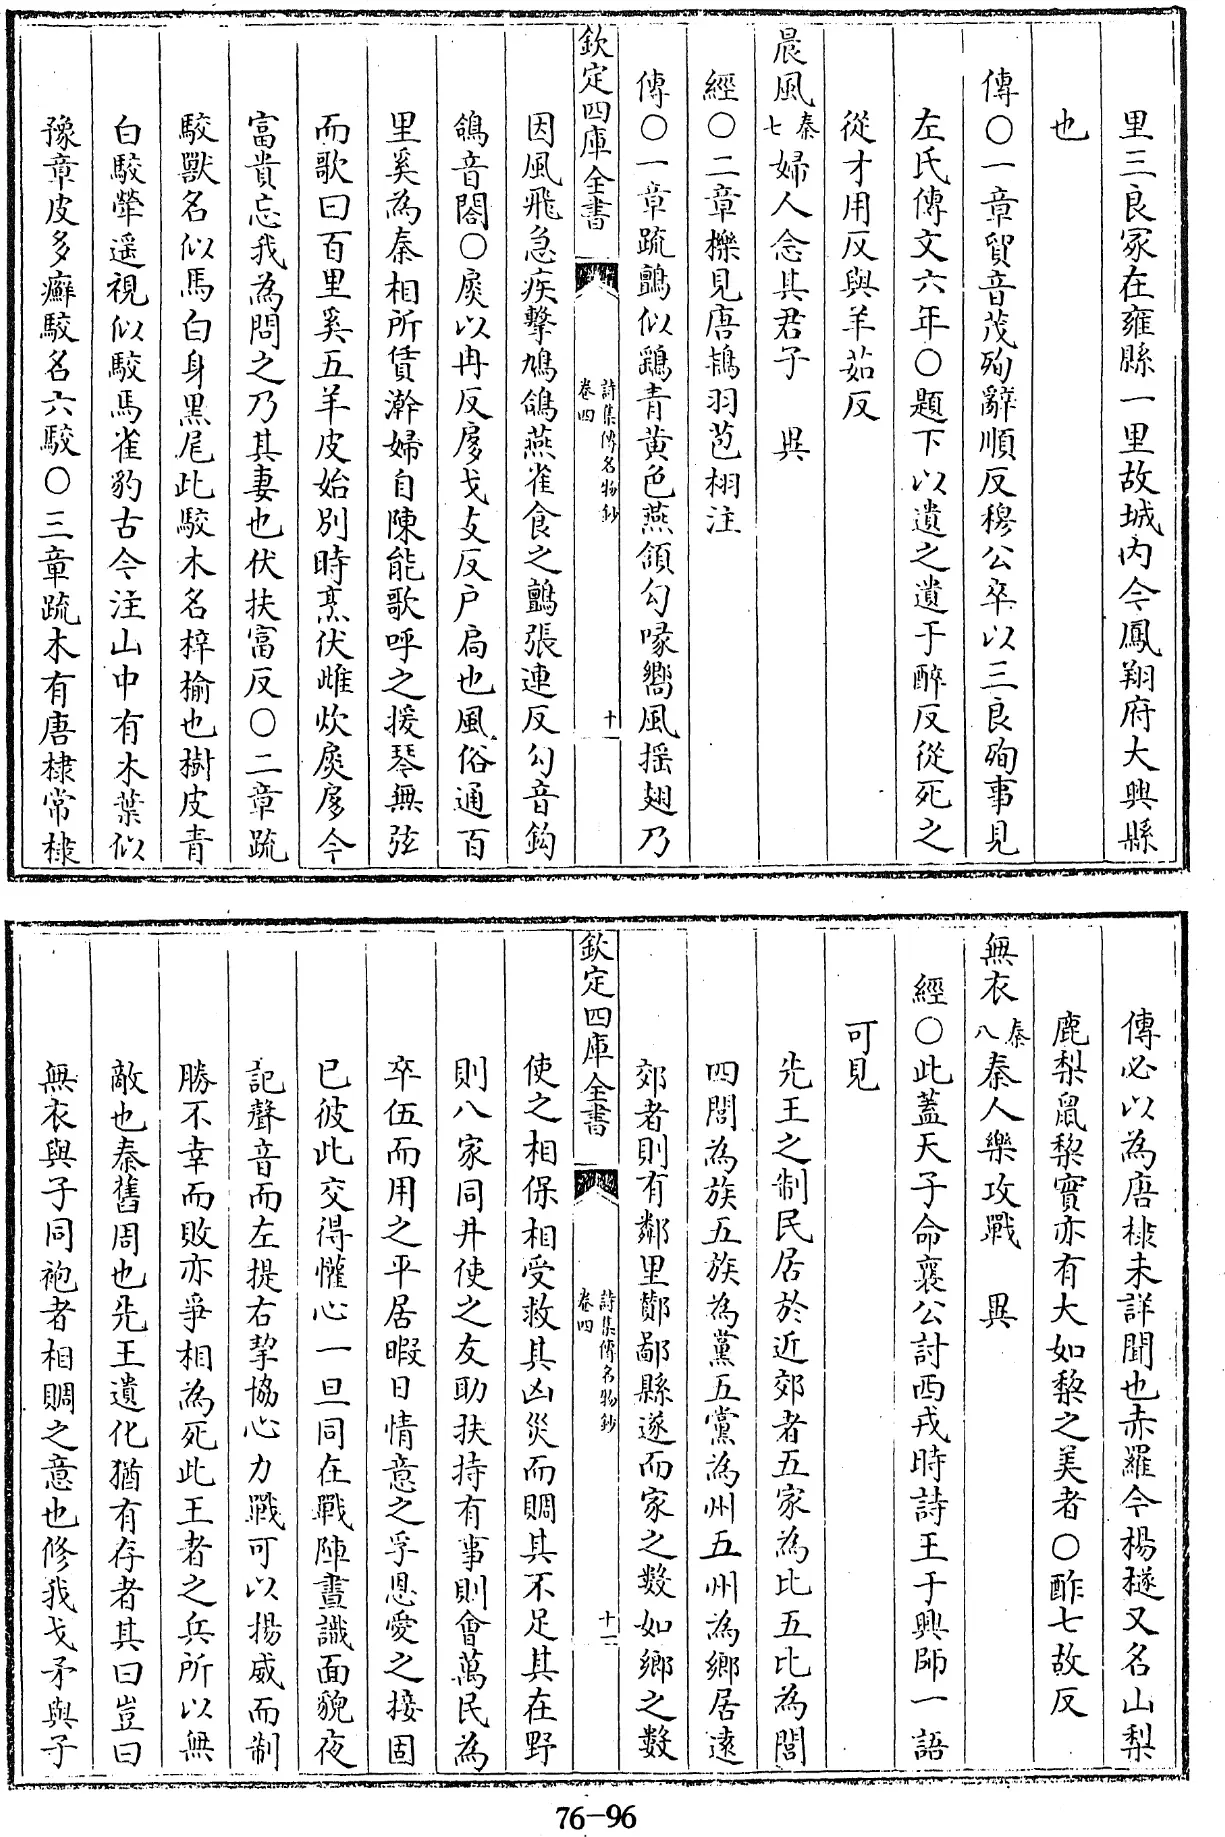 里三良冢在雍縣一里故城内今鳳翔府大興縣
也
傳○一章貿音茂殉辭順反穆公卒以三良殉事見
左氏傳文六年○題下以遺之遺于醉反從死之
從才用反與羊茹反
晨風秦七婦人念其君子 興
經○二章櫟見唐鴇羽苞栩注
傳○一章疏鸇似鷂青黄色燕頷勾喙嚮風揺翅乃
欽定四庫全書
詩集傳名物鈔
卷四
十
因風飛急疾擊鳩鴿燕雀食之鸇張連反勾音鈎
鴿音閤○扊以冉反扅戈支反户扃也風俗通百
里奚為秦相所賃澣婦自陳能歌呼之援琴無弦
而歌曰百里奚五羊皮始别時烹伏雌炊扊扅今
富貴忘我為問之乃其妻也伏扶富反○二章疏
駮獸名似馬白身黑尾此駮木名梓榆也樹皮青
白駮犖遥視似駮馬雀豹古今注山中有木葉似
豫章皮多癬駮名六駮○三章疏木有唐棣常棣
傳必以為唐棣未詳聞也赤羅今楊檖又名山梨
鹿梨鼠棃實亦有大如棃之美者○酢七故反
無衣秦八秦人樂攻戰 興
經○此蓋天子命襄公討西戎時詩王于興師一語
可見
先王之制民居於近郊者五家為比五比為閭
四閭為族五族為黨五黨為州五州為鄉居遠
郊者則有鄰里酇鄙縣遂而家之數如鄉之數
欽定四庫全書
詩集傳名物鈔
卷四
十一
使之相保相受救其凶災而賙其不足其在野
則八家同井使之友助扶持有事則會萬民為
卒伍而用之平居暇日情意之孚恩愛之接固
已彼此交得懽心一旦同在戰陣晝識面貌夜
記聲音而左提右挈協心力戰可以揚威而制
勝不幸而敗亦爭相為死此王者之兵所以無
敵也秦舊周也先王遺化猶有存者其曰豈曰
無衣與子同袍者相賙之意也修我戈矛與子
76-96